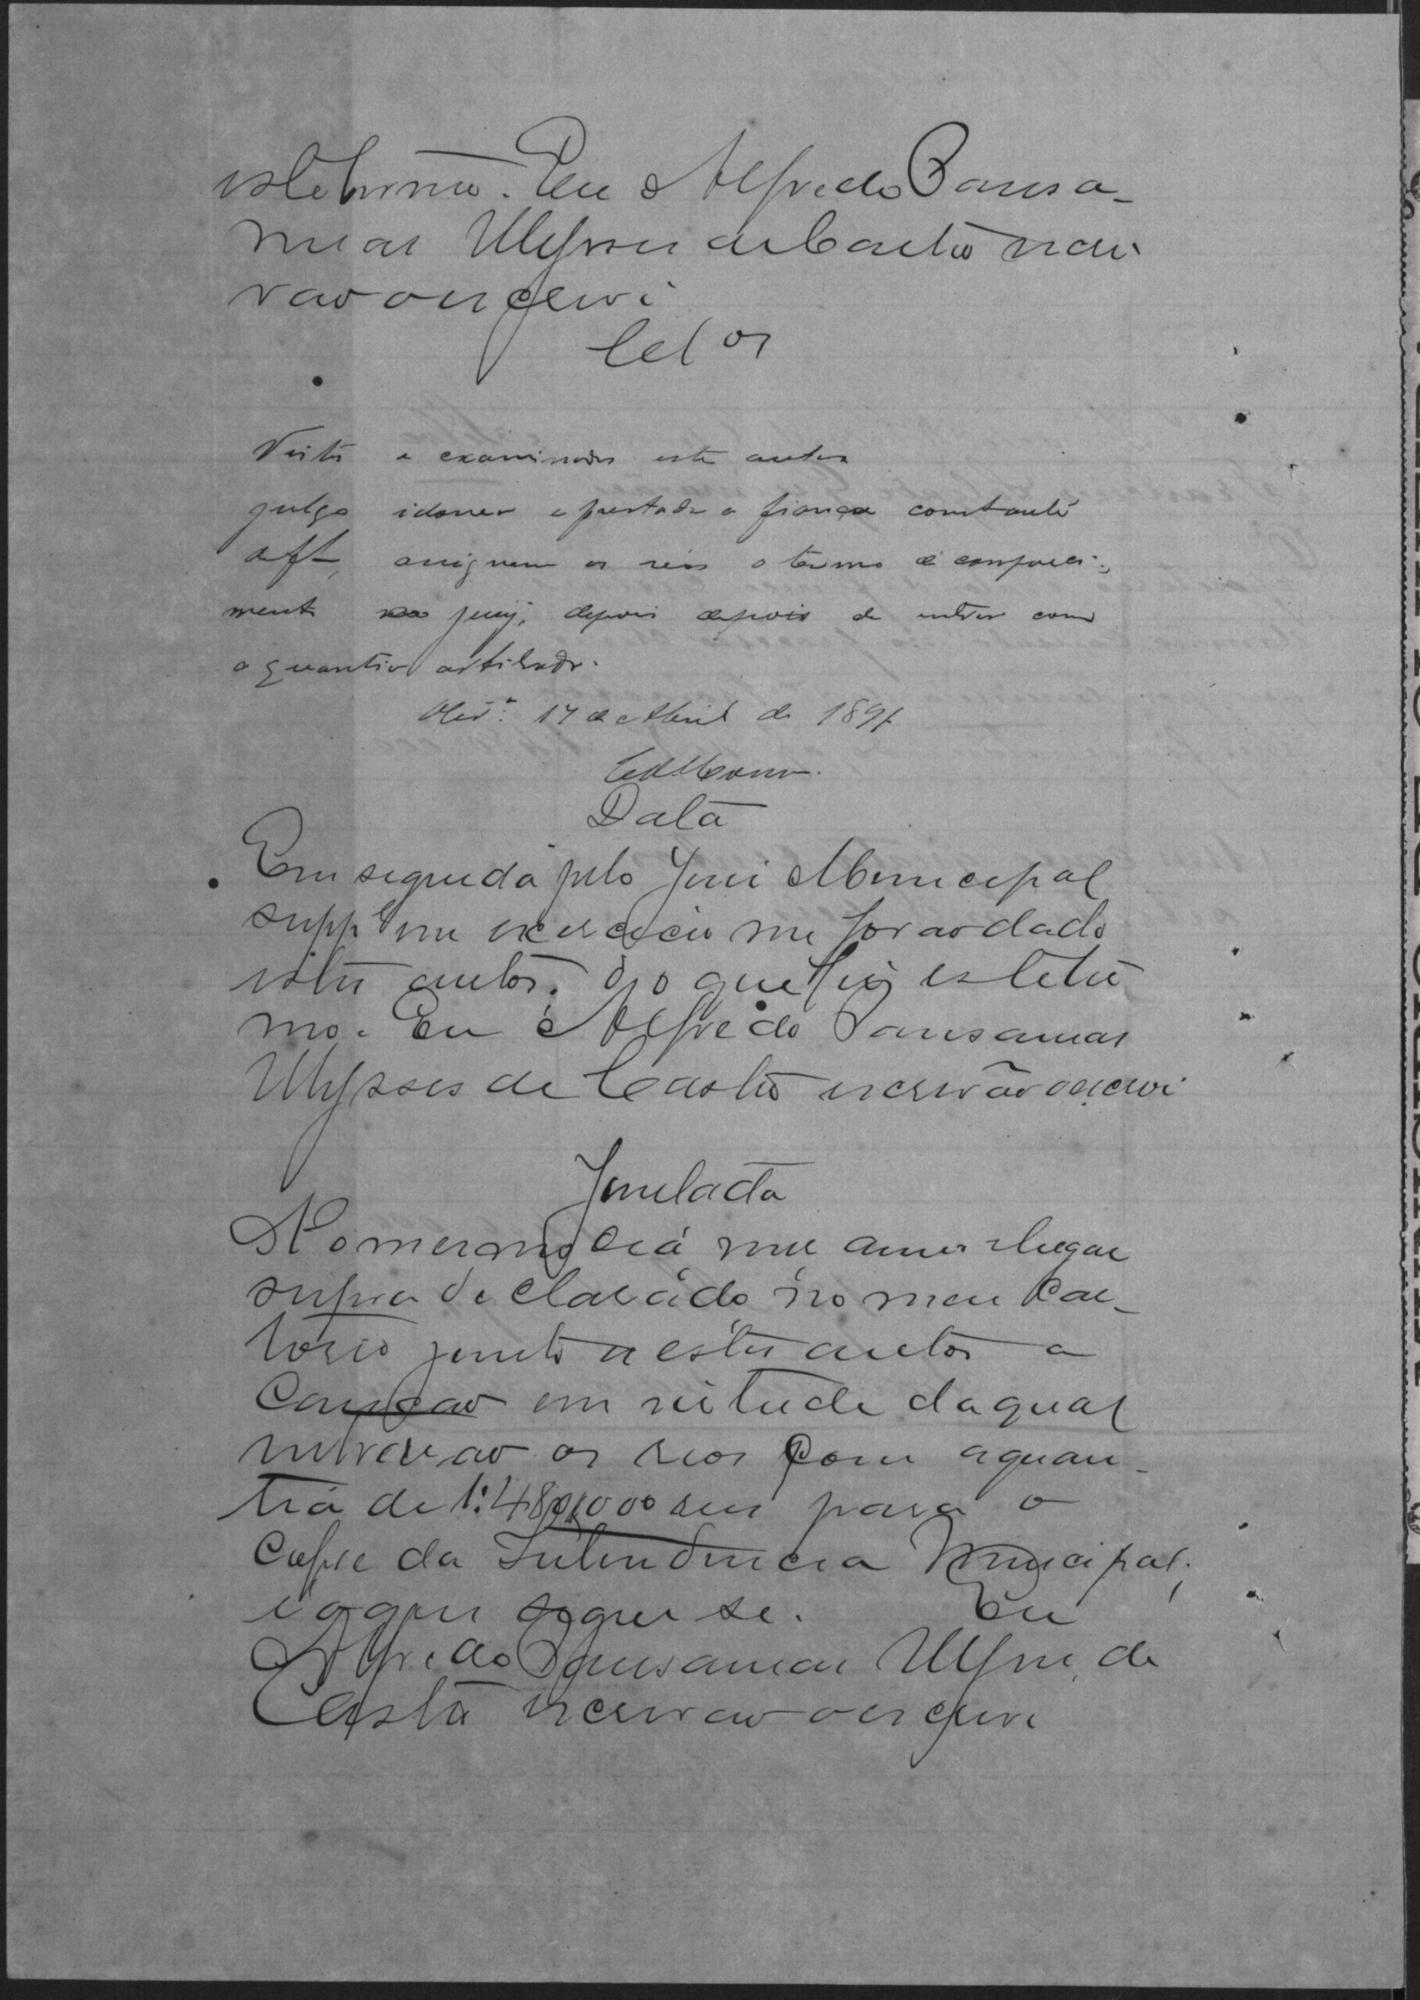 este termo. Eu Alfredo Pausa-
nias Ulysses de Castro escri-
vão o escrevi
Cclos
Vistos e examinados estes autos
julgo idonea e prestada a fiança constante
a f assignem os reos o termo de compareci-
mento no jury, depois depois de entrar com
a quantia arbitrada.
17 de Abril de 1891
Data
Em seguida pelo Juiz Municipal
suppte em exercicio me forão dado
estes autos; do que fiz este ter
mo. Eu Alfredo Pausanias
Ulysses de Castro escrivão o escrevi
Juntada
No mesmo dia mez anno e lugar
supra declarado no meu Car-
torio junto a estes autos a
caução em virtude da qual
entrarão os reos com a quan-
tia de 1:480$000 reis para o
Cofre da Intendencia Municipal;
e o que segue se. Eu
Alfredo Pausanias Ulysses de
Castro escrivão o escrevi